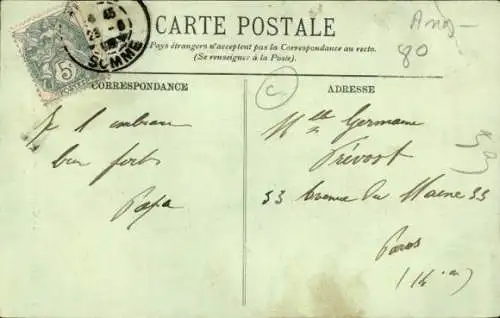 CARTE POSTALE
Pays étrangers n'acceptent pas la Correspondance au recto.
(Se renseigner à la Poste).
CORRESPONDANCE
ADRESSE
SOMME
5
Amos
80
C
Je t'embrasse
bien fort
Papa
Mlle Germaine
Prévost
33 Avenue du Maine 33
Paris
(14e)
33